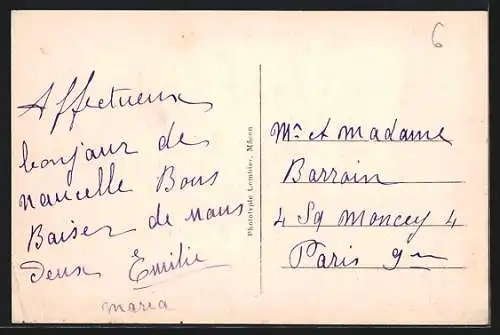 Affectueux
bonjour de
naucelle Bons
Baiser de nous
Deux Emilie
maria
Phototypie Combier, Mâcon
6
Mr et madame
Barrain
4 Sq Moncey 4
Paris 9me